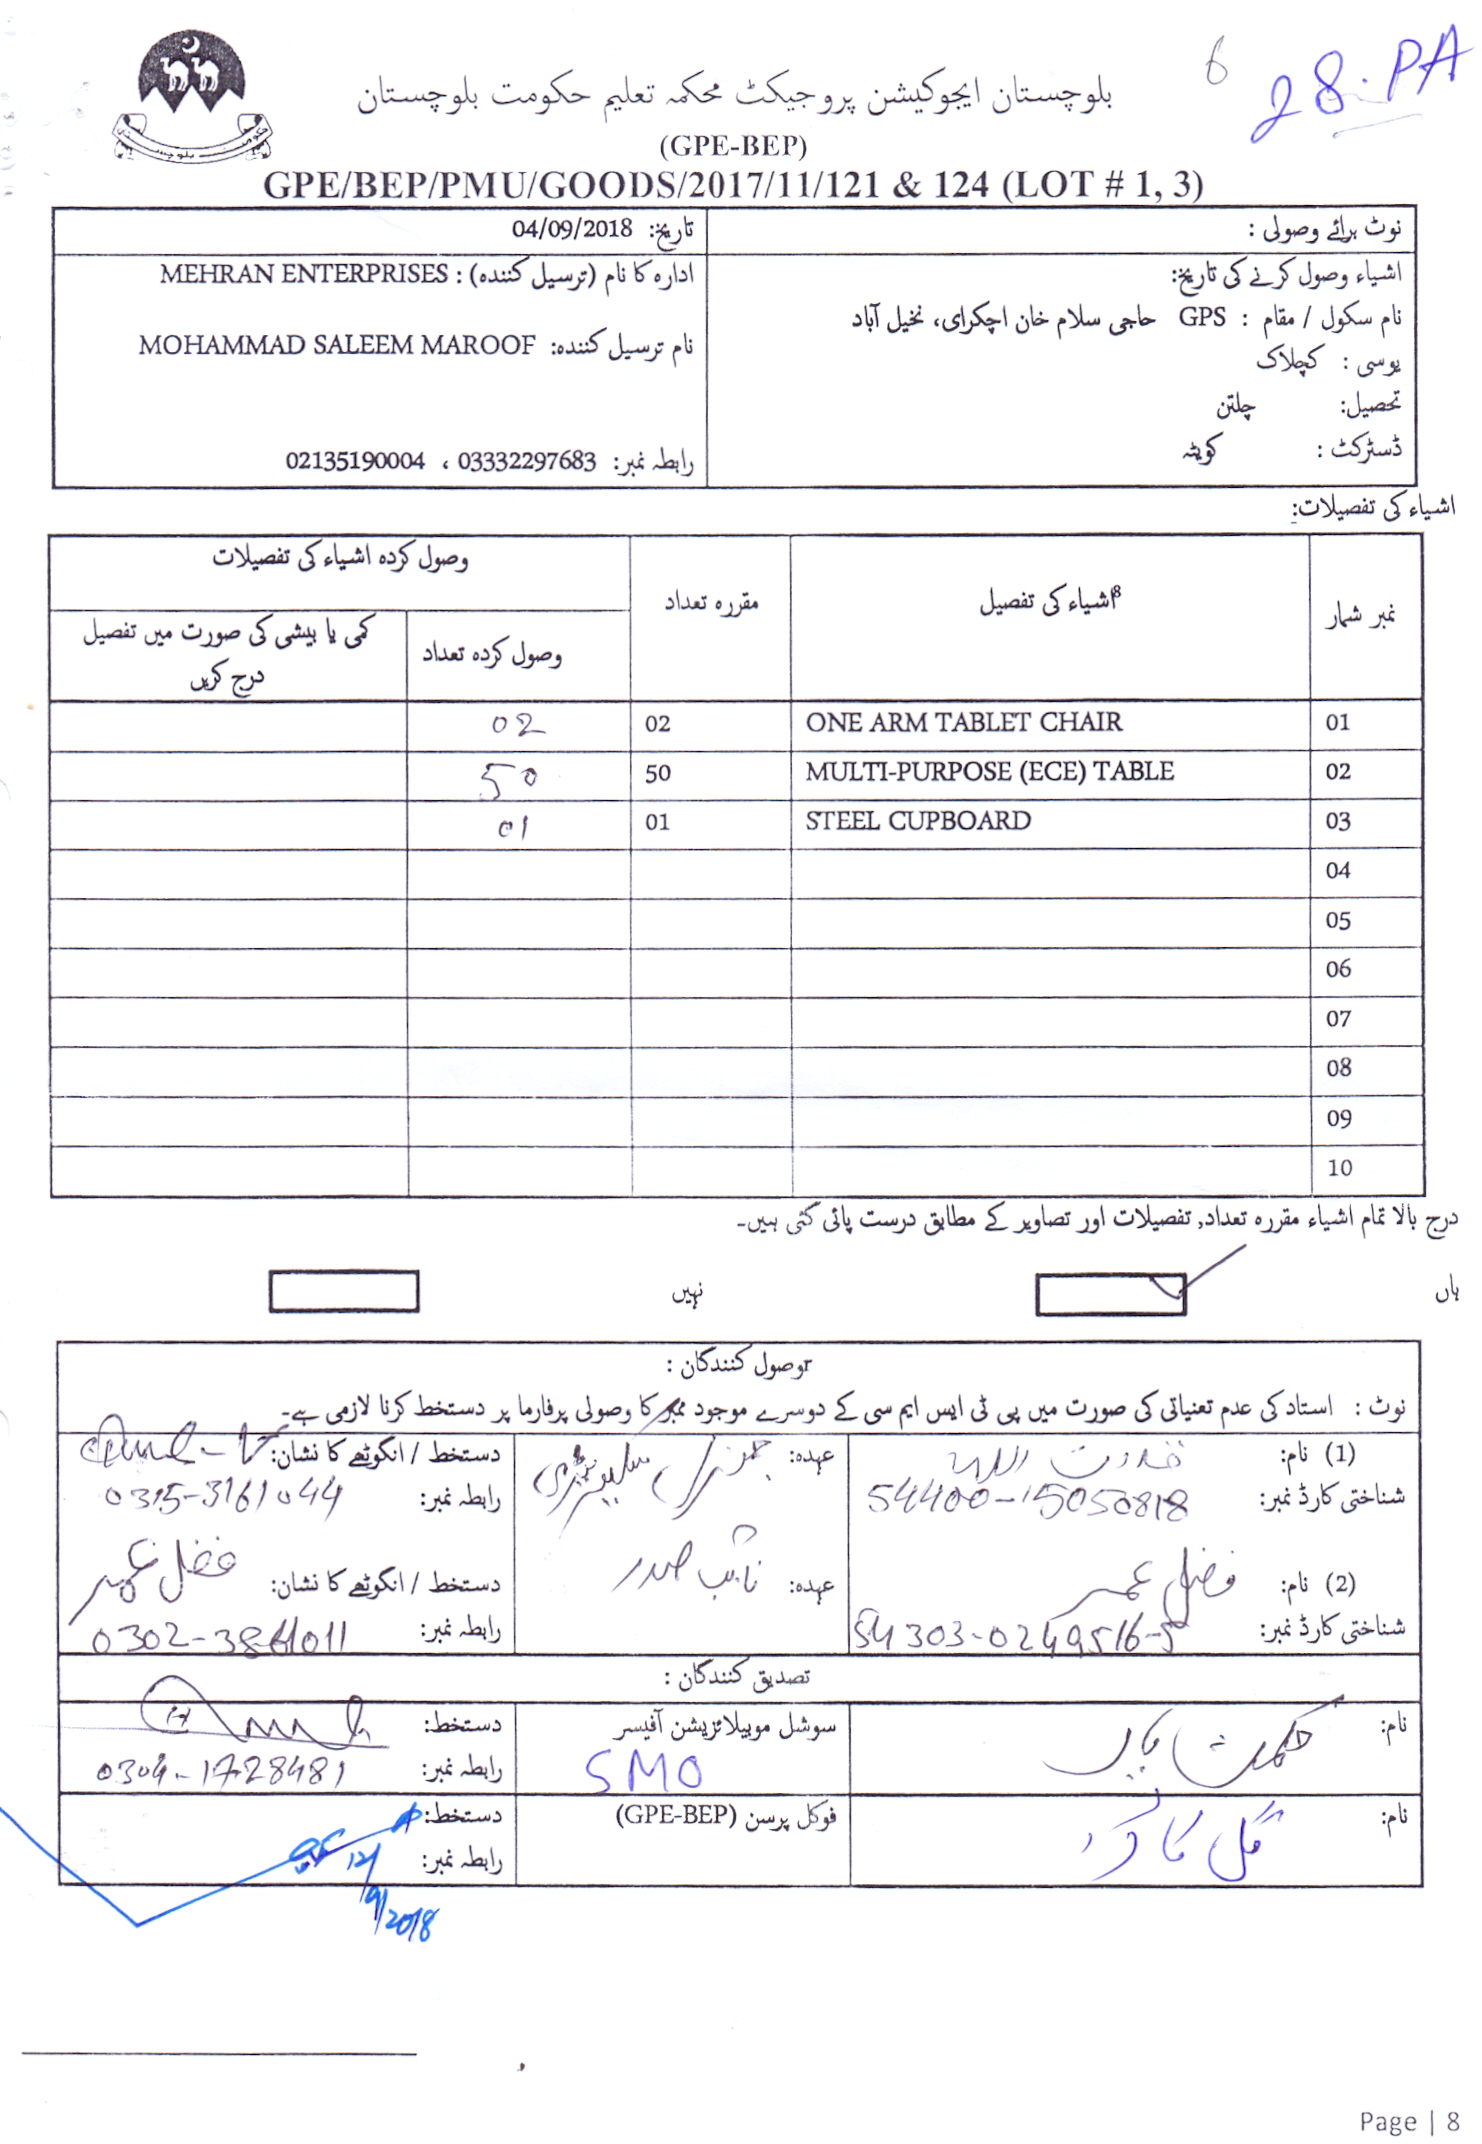 6
28. PA
بلوچستان ایجوکیشن پروجیکٹ محکمہ تعلیم حکومت بلوچستان
(GPE-BEP)
GPE/BEP/PMU/GOODS/2017/11/121 & 124 (LOT # 1, 3)
نوٹ برائے وصولی :
تاریخ: 04/09/2018
اشیاء وصول کرنے کی تاریخ:
نام سکول / مقام : GPS حاجی سلام خان اچکزای، نخیل آباد
یوسی : کچلاک
تحصیل: چلتن
ڈسٹرکٹ : کویٹہ
ادارہ کا نام (ترسیل کنندہ) : MEHRAN ENTERPRISES
نام ترسیل کنندہ: MOHAMMAD SALEEM MAROOF
رابطہ نمبر: 03332297683 ، 02135190004
اشیاء کی تفصیلات:
نمبر شمار
اشیاء کی تفصیل8
مقررہ تعداد
وصول کردہ اشیاء کی تفصیلات
وصول کردہ تعداد
کمی یا بیشی کی صورت میں تفصیل
درج کریں
01 ONE ARM TABLET CHAIR 02 02
02 MULTI-PURPOSE (ECE) TABLE 50 50
03 STEEL CUPBOARD 01 01
04
05
06
07
08
09
10
درج بالا تمام اشیاء مقررہ تعداد, تفصیلات اور تصاویر کے مطابق درست پائی گئی ہیں۔
ہاں
نہیں
وصول کنندگان :
نوٹ : استاد کی عدم تعنیاتی کی صورت میں پی ٹی ایس ایم سی کے دوسرے موجود ممبر کا وصولی پرفارما پر دستخط کرنا لازمی ہے۔
(1) نام: قدرت اللہ عہدہ: جنرل سیکریٹری دستخط / انگوٹھے کا نشان:
شناختی کارڈ نمبر: 54400-15050818 رابطہ نمبر: 0315-3161044
(2) نام: فضل عمر عہدہ: نائب صدر دستخط / انگوٹھے کا نشان: فضل عمر
شناختی کارڈ نمبر: 54303-0249516-5 رابطہ نمبر:
تصدیق کنندگان :
نام: حکمت سوشل موبیلائزیشن آفیسر دستخط:
SMO رابطہ نمبر: 0304-1728481
نام: گل فوکل پرسن (GPE-BEP) دستخط:
رابطہ نمبر:
12/9/2018
Page | 8